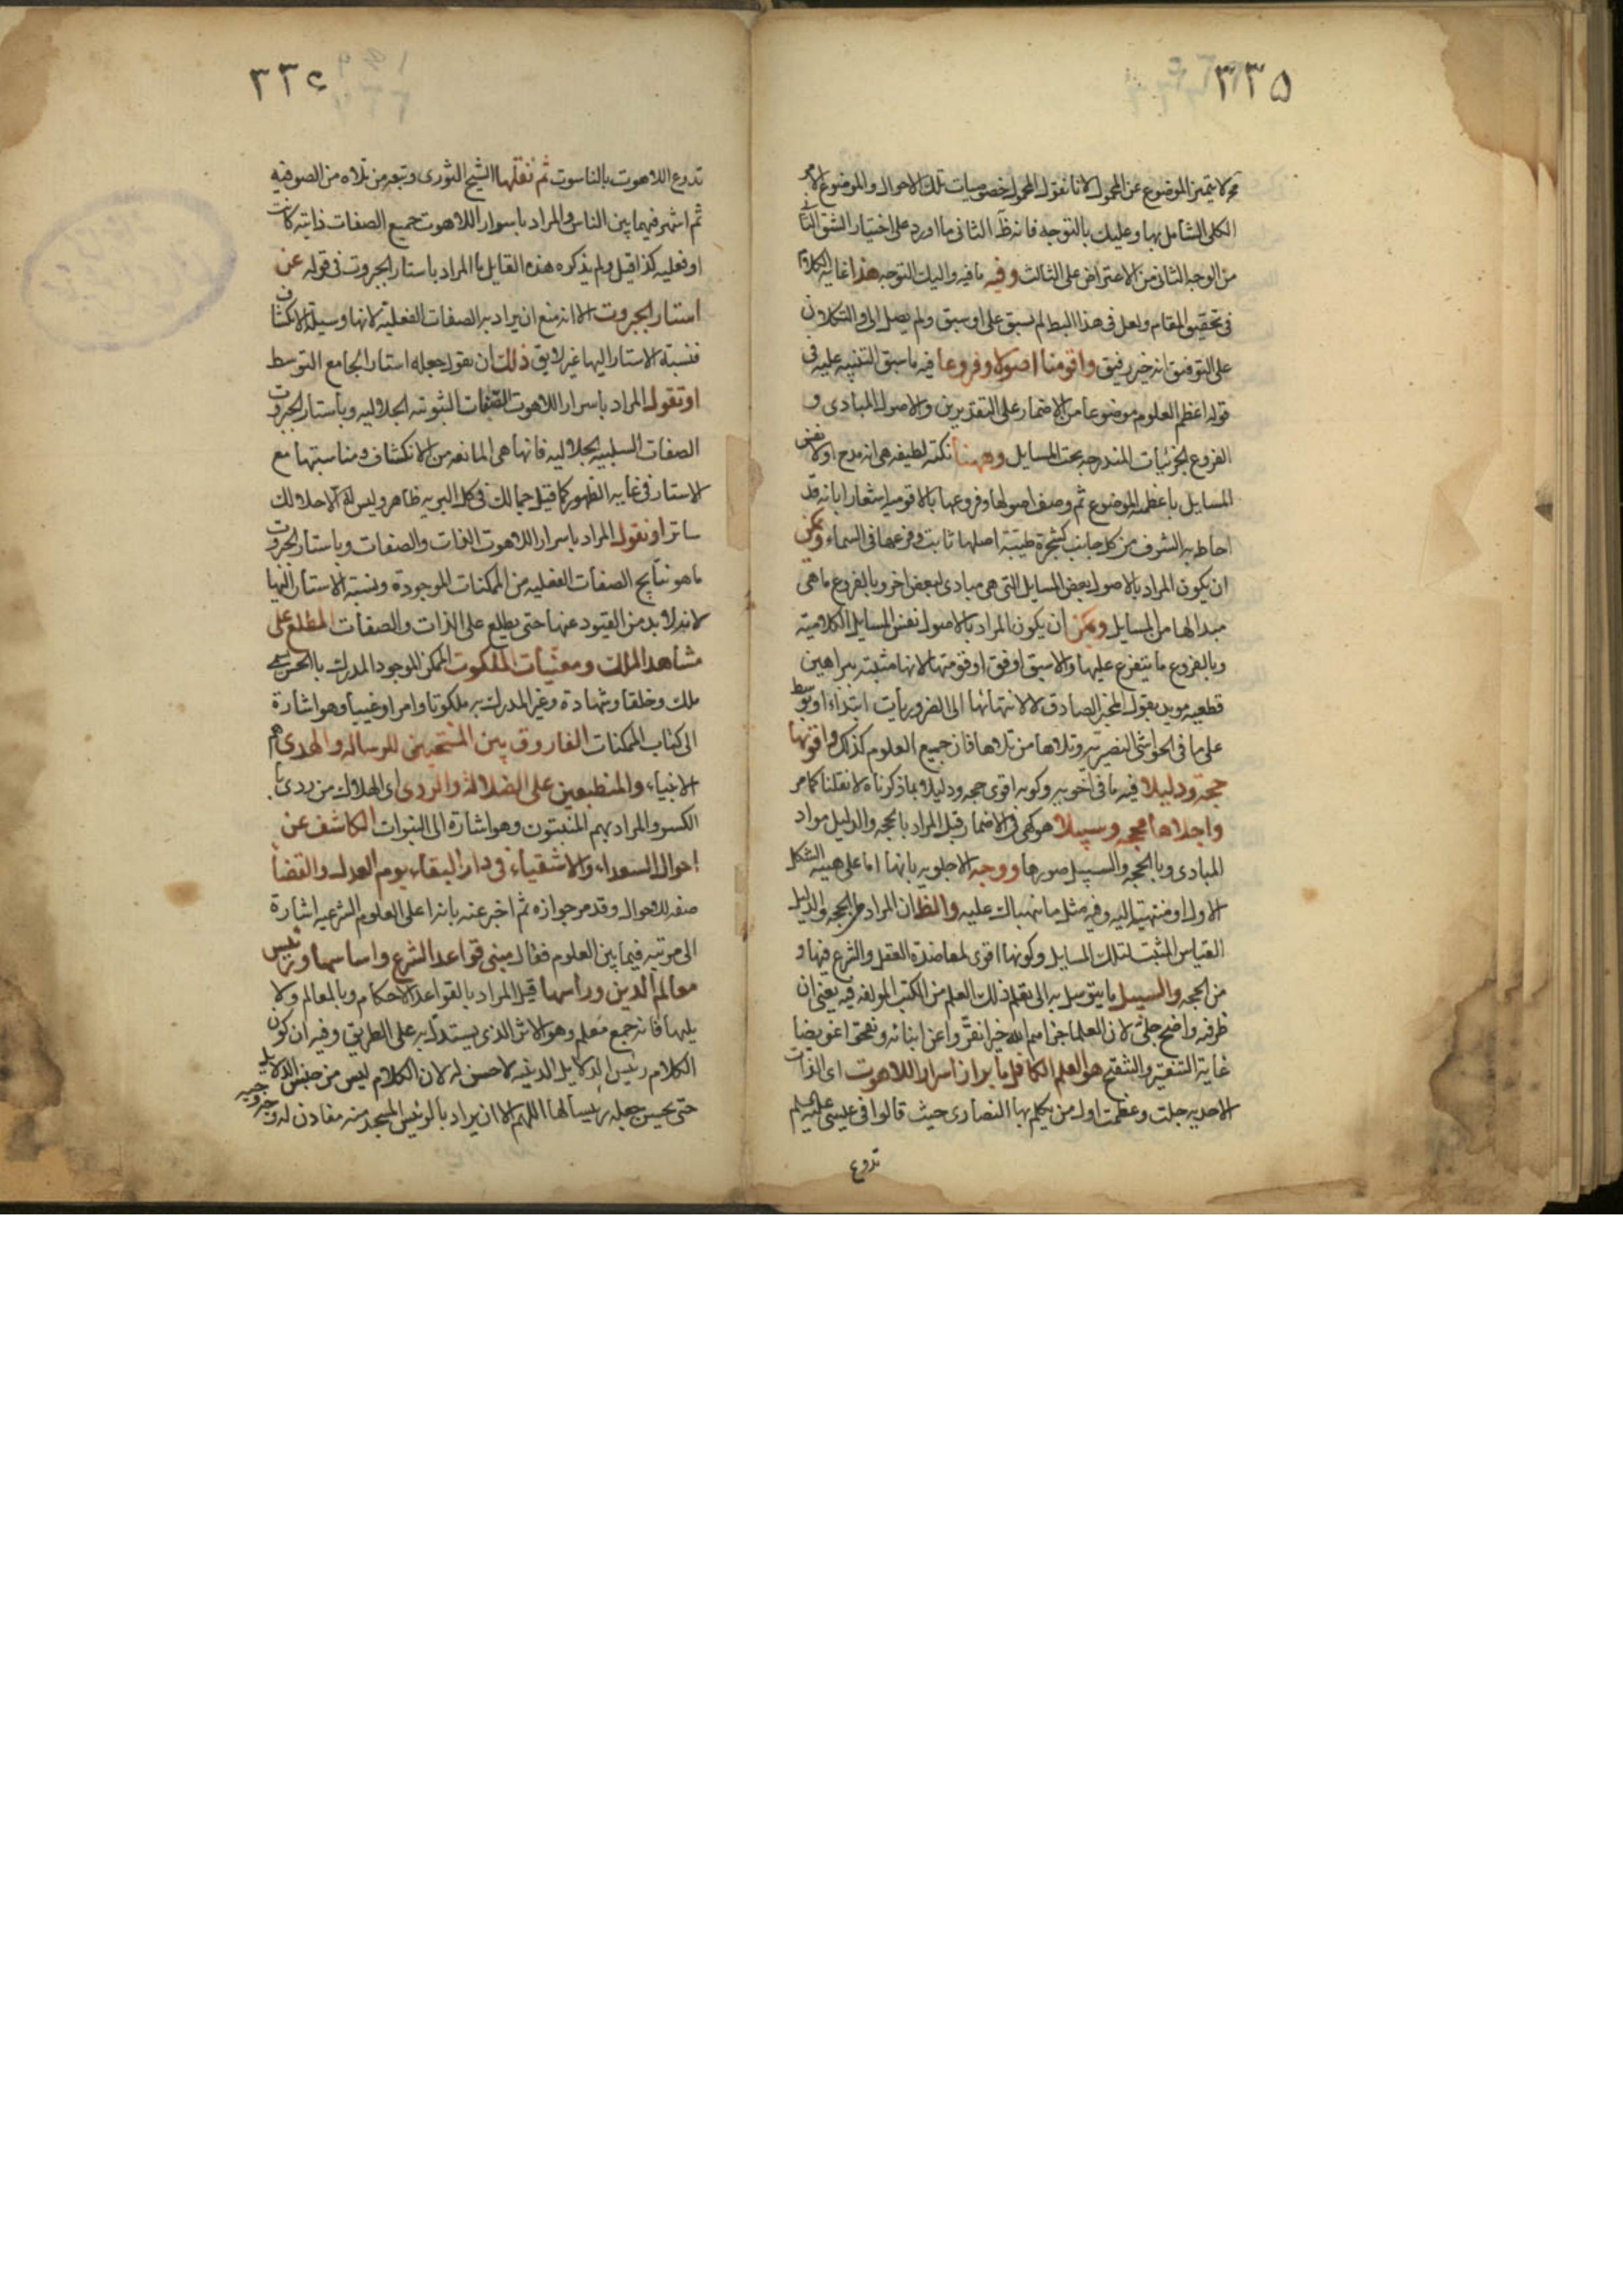 ٣٣٥
لا يتميز الموضوع عن المحمول لانا نقول المحمول خصوصيات تلك الاحوال والموضوع الامر
الكلى الشامل بها وعليك بالتوجه فانه الثانى ما اورد على اختيار الشق
من الوجه الثانى من الاعتراض على الثالث وفيه ما فيه واليك التوجه هذا غاية الكلام
فى تحقيق المقام ولعل فى هذا البسط لم يسبق على اوسبق ولم يصل الى والتكلان
على التوفيق انه خير رفيق واقومها اصولا وفروعا فيه ما سبق التنبيه عليه فى
قوله اعظم العلوم موضوعا من الاضمار على التقديرين والاصول المبادى و
الفروع الجزئيات المندرجة تحت المسايل وههنا نكتة لطيفة هى انه مدح اولا
المسايل باعظمية الموضوع ثم وصف اصولها وفروعها بالاقومية اشعارا بانه قد
احاط به الشرف من كل جانب كشجرة طيبة اصلها ثابت وفرعها فى السماء ويمكن
ان يكون المراد بالاصول بعض المسايل التى هى مبادى لبعض اخر وبالفروع ما هى
مبدا لها من المسايل ويمكن ان يكون المراد بالاصول نفس المسايل الكلامية
وبالفروع ما يتفرع عليها والاسبق اوفق اوقومتها لانها مثبتة ببراهين
قطعية مويد بقول المخبر الصادق لا لانتهائها الى الضروريات ابتداء او بتوسط
على ما فى الحواشى النصيرية وتلاها من تلاها فان جميع العلوم كذلك واقويها
حجة ودليلا فيه ما فى اخويه وكونه اقوى حجة ودليلا بما ذكرناه لا نقلنا كما مر
واجلاها محجة وسبيلا هو كهى فى الاضمار قيل المراد بالحجة والدليل مواد
المبادى وبالمحجة والسبيل صورها ووجه الاجلوية بانها اما على هيئة الشكل
الاول او منتهية اليه وفيه مثل ما نبهناك عليه والظ ان المراد من الحجة والدليل
القياس المثبت لتلك المسايل وكونها اقوى لمعاضدة العقل والشرع فيها و
من المحجة والسبيل ما يتوسل به الى تعلم ذلك العلم من الكتب المولفة فيه يعنى ان
طرقه واضح جلى لان العلما جزاهم الله خيرا نقروا عن ابنائه ونقحوا غويصا
غاية التنقير والتنقيح هو العلم الكافل بابراز اسرار اللاهوت اى الذات
الاحدية جلت وعظمت اول من يكلم بها النصارى حيث قالوا فى عيسى عليه السلم
تدرع
٣٣٦
تدرع اللاهوت بالناسوت ثم نقلها الشيخ الثورى وتبعه من تلاه من الصوفية
ثم اشتهر فيما بين الناس والمراد باسرار اللاهوت جميع الصفات ذاتية كانت
او فعلية كذا قيل ولم يذكره هذه القايل ما المراد باستار الجبروت فى قوله عن
استار الجبروت الا انه منع ان يراد به الصفات الفعلية لانها وسيلة الانكشاف
فنسبة الاستار اليها غير لايق ذلك ان نقول جعله استارا لجامع التوسط
او نقول المراد باسرار اللاهوت الصفات الثبوتية الجلالية وباستار الجبروت
الصفات السلبية الجلالية فانها هى المانعة من الانكشاف ومناسبتها مع
الاستار فى غاية الظهور كما قيل جمالك فى كل البرية ظاهر وليس له الا جلالك
ساتر او نقول المراد باسرار اللاهوت الذات والصفات وباستار الجبروت
ما هو نتايج الصفات الفعلية من الممكنات الموجودة ونسبة الاستار اليها
لانه لا بد من القيود عنها حتى يطلع على الذات والصفات المطلع على
مشاهد الملك ومغيبات الملكوت الممكن الموجود المدرك بالحس يسمى
ملك وخلقا وشهادة وغير المدرك به ملكوتا وامرا وغيبا وهو اشارة
الى كتاب الممكنات الفاروق بين المنتجبين للرسالة والهدى هم
الانبياء والمنطبعين على الضلالة والردى اى الهلاك من ردى
الكسر والمراد بهم المنبئون وهو اشارة الى النبوات الكاشف عن
احوال السعداء والاشقياء فى دار البقاء يوم العدل والقضا
صفة للاحوال وقد مر جوازه ثم اخبر عنه بانه اعلى العلوم الشرعية اشارة
الى مرتبته فيما بين العلوم فقال مبنى قواعد الشرع واساسها ورئيس
معالم الدين وراسها قيل المراد بالقواعد الاحكام وبالمعالم
يليها فانه جمع معلم وهو الاثر الذى يستدل به على الطريق وفيه ان كون
الكلام رئيس الدلايل الدينية لا حسن له لان الكلام ليس من جنس الدلايل
حتى يحسن جعله رئيسا لها اللهم الا ان يراد بالرئيس